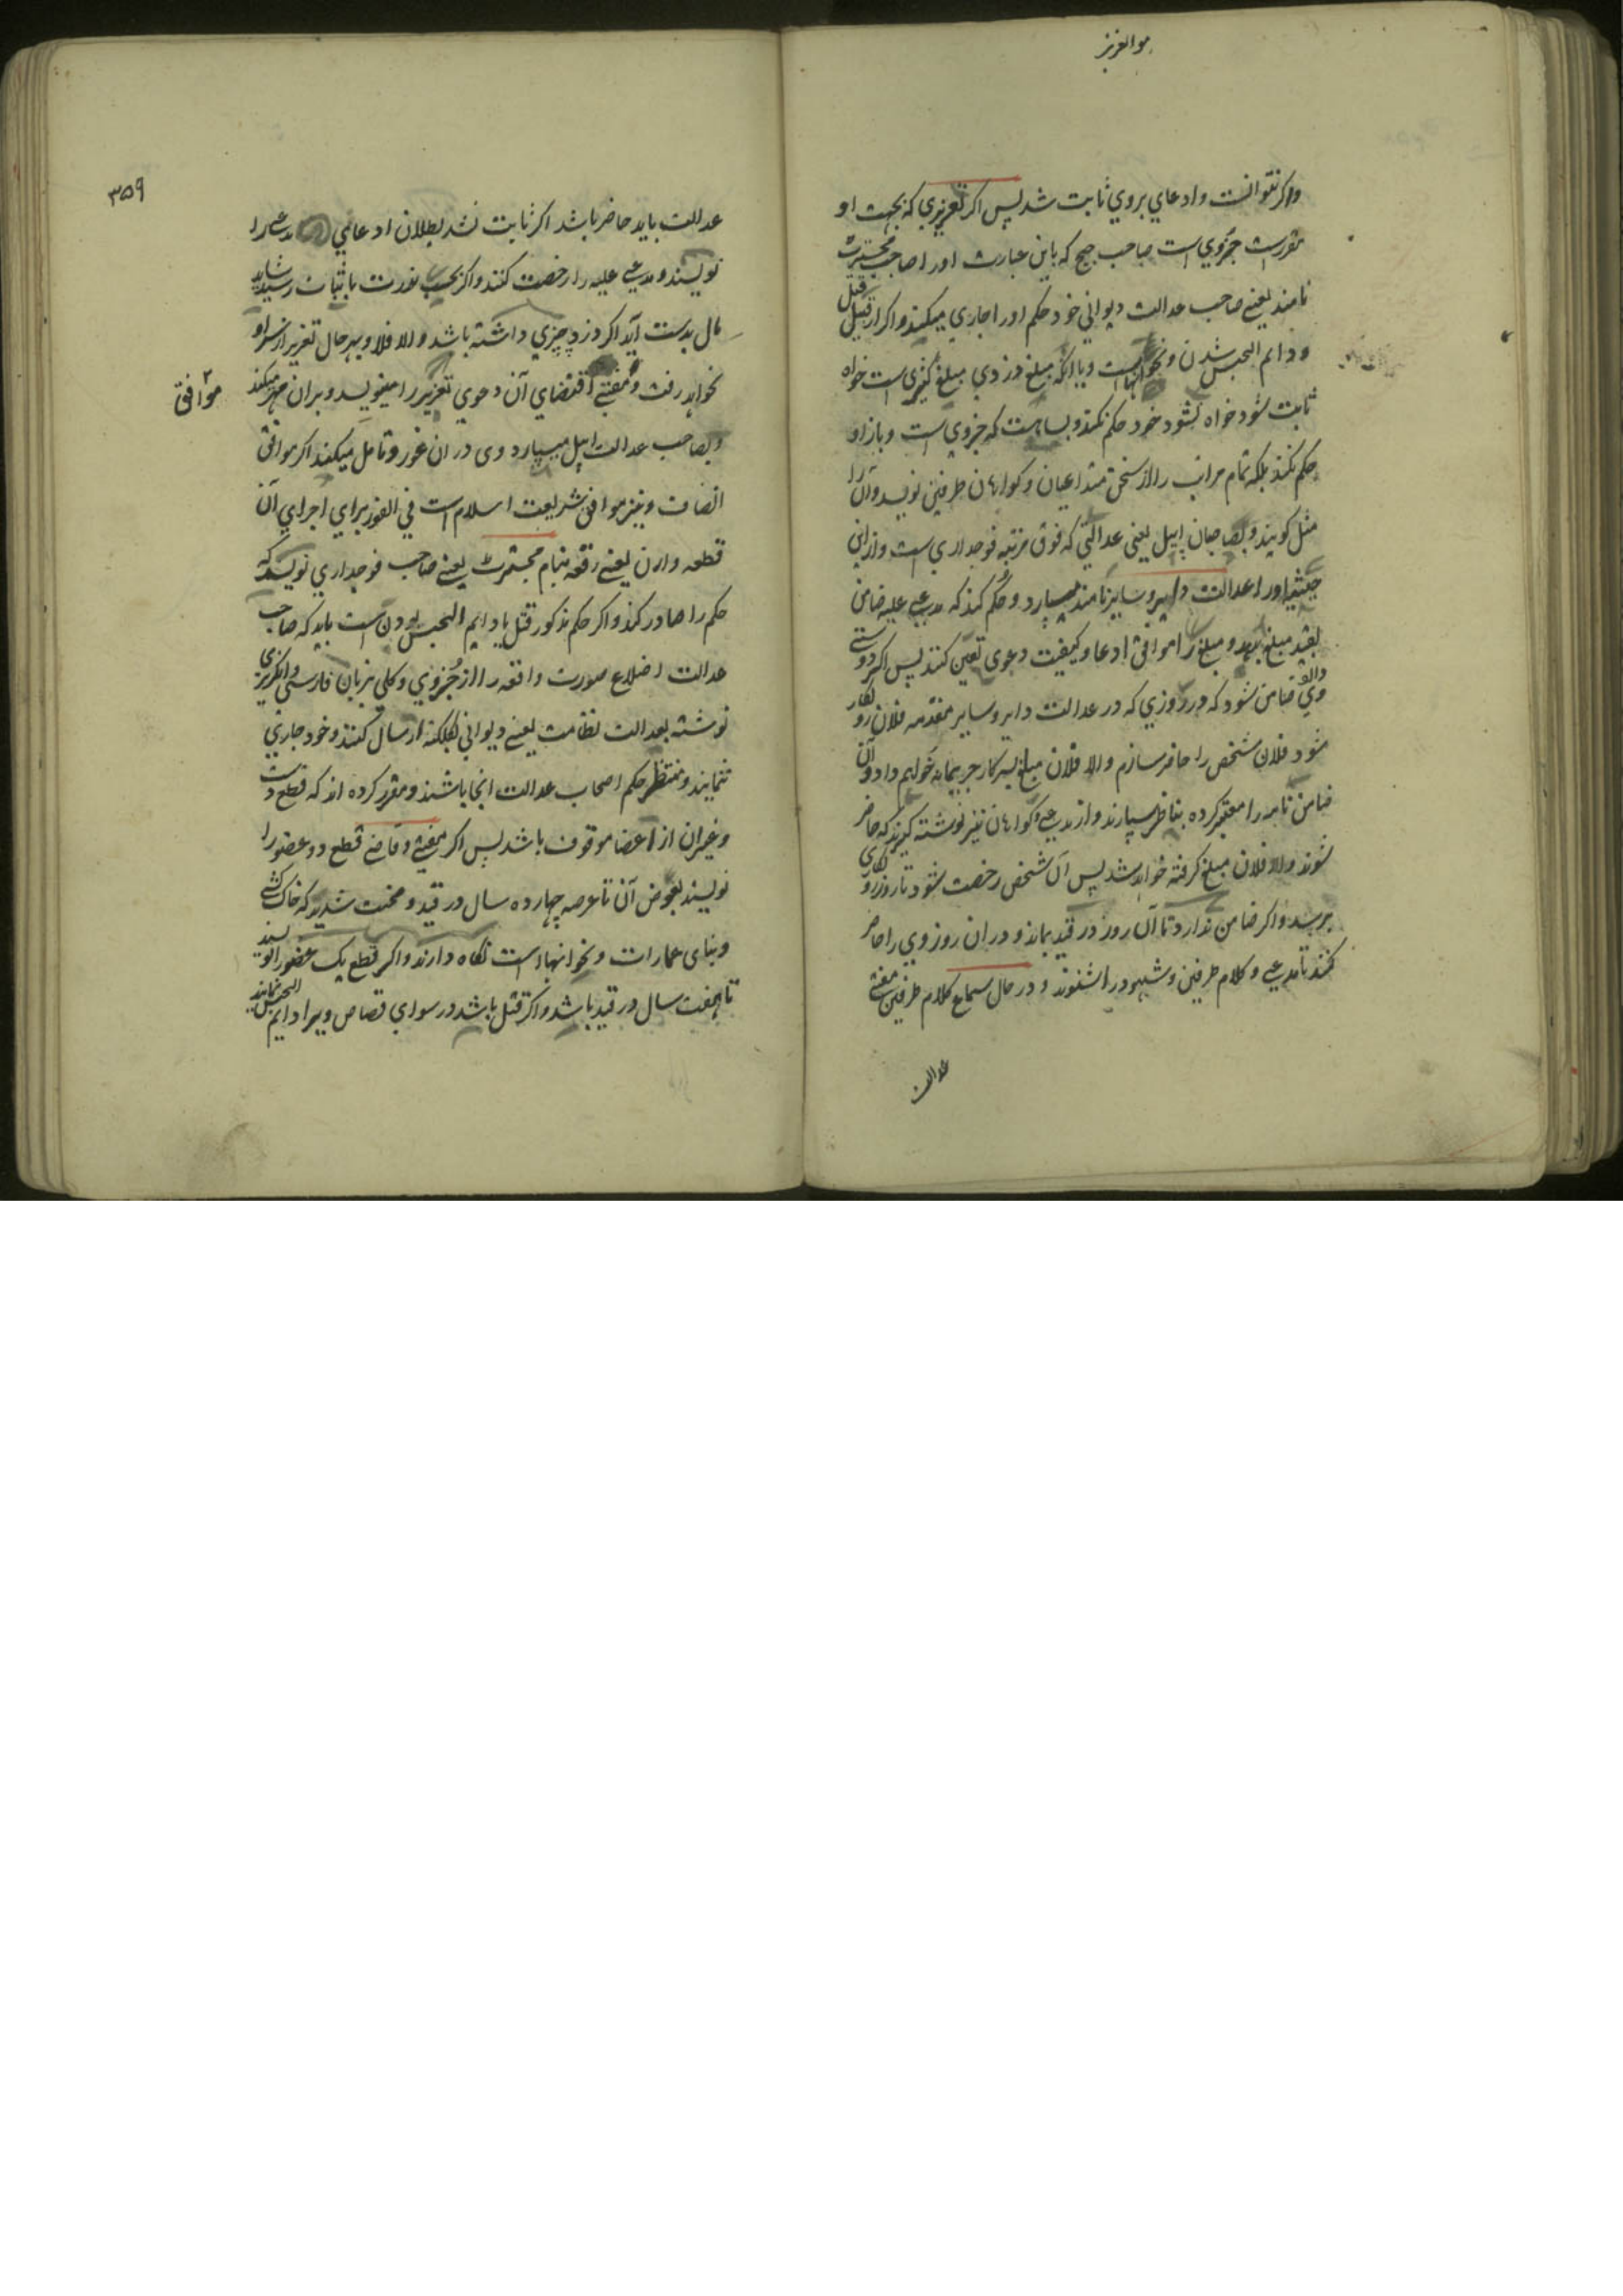 هو العزیز
واکر نتوانست وادعای بروی ثابت شد پس اکر تعزیری که بجهت او
مقررست جزوی است صاحب جج که باین عبارت اورا صاحب مجسترت
نامند یعنے صاحب عدالت دیوانی خود حکم اورا جاری میکند واکر از قبیل قتل
ودایم الحبس شدن ونحو انهاست ویا انکه مبلغ دزدی مبلغ کثیری است خواه
ثابت شود خواه نشود خود حکم نکند وبساهست که جزوی است وباز او
حکم نکند بلکه تمام مراتب را از سخن متداعیان وکواهان طرفین نویسد وآن را
مثل کویند وبصاحبان اپیل یعنی عدالتی که فوق مرتبه فوجداری است وازین
حیثیت اورا عدالت دایر وسایر نامند میسپارد وحکم کند که مدعے علیه ضامن
بقید مبلغ بدهد ومبلغ را موافق ادعا وکیفیت دعوی تعین کنند پس اکر دوستے
وی ضامن شود که در روزی که در عدالت دایر وسایر مقدمه فلان روبکار
شود فلان شخص را حاضر سازم والا فلان مبلغ بسرکار جریمانه خواهم داد وآن
ضامن نامه را معتبر کرده بناظر سپارند واز مدعے وکواهان نیز نوشته کیرند که حاضر
شوند والا فلان مبلغ کرفته خواهد شد پس آن شخص رخصت شود تا روز روبکاری
برسد واکر ضامن ندارد تا آن روز در قید بماند ودران روز وی را حاضر
کنند تا مدعے وکلام طرفین وشهود را شنوند ودر حال سماع کلام طرفین مفتے
عدالت
۳۵۹
عدالت باید حاضر باشد اکر ثابت نشد بطلان ادعای مدعے را
نویسند ومدعے علیه را رخصت کنند واکر بحسب ندرت باثبات رسید شاید
مال بدست آید اکر دزد چیزی داشته باشد والا فلا وبهر حال تعزیر از سر او
نخواهد رفت ومفتے اقتضای آن دعوی تعزیر را مینویسد وبران مهر میکند
موافق
وبصاحب عدالت اپیل میسپارد وی دران غور وتامل میکند اکر موافق
انصاف ونیز موافق شریعت اسلام است فی الفور برای اجرای آن
قطعه وارن یعنے رقعه بنام مجسترت یعنے صاحب فوجداری نویسد که
حکم را صادر کند واکر حکم مذکور قتل یا دایم الحبس بودن است باید که صاحب
عدالت اضلاع صورت واقعه را از جزوی وکلی بزبان فارسی وانکریزی
نوشته بعدالت نظامت یعنے دیوانی کلکته ارسال کنند وخود جاری
ننمایند ومنتظر حکم اصحاب عدالت انجا باشند ومقرر کرده اند که قطع دست
وغیران از اعضا موقوف باشد پس اکر مفتے وقاضے قطع دو عضو را
نویسند بعوض آن تا عرصه چهارده سال در قید ومحنت شدید که خاک کشے
وبنای عمارات ونحو انها است نکاه دارند واکر قطع یک عضو را نویسند
تا هفت سال در قید باشد واکر قتل باشد در سوای قصاص ویرا دایم الحبس نمایند